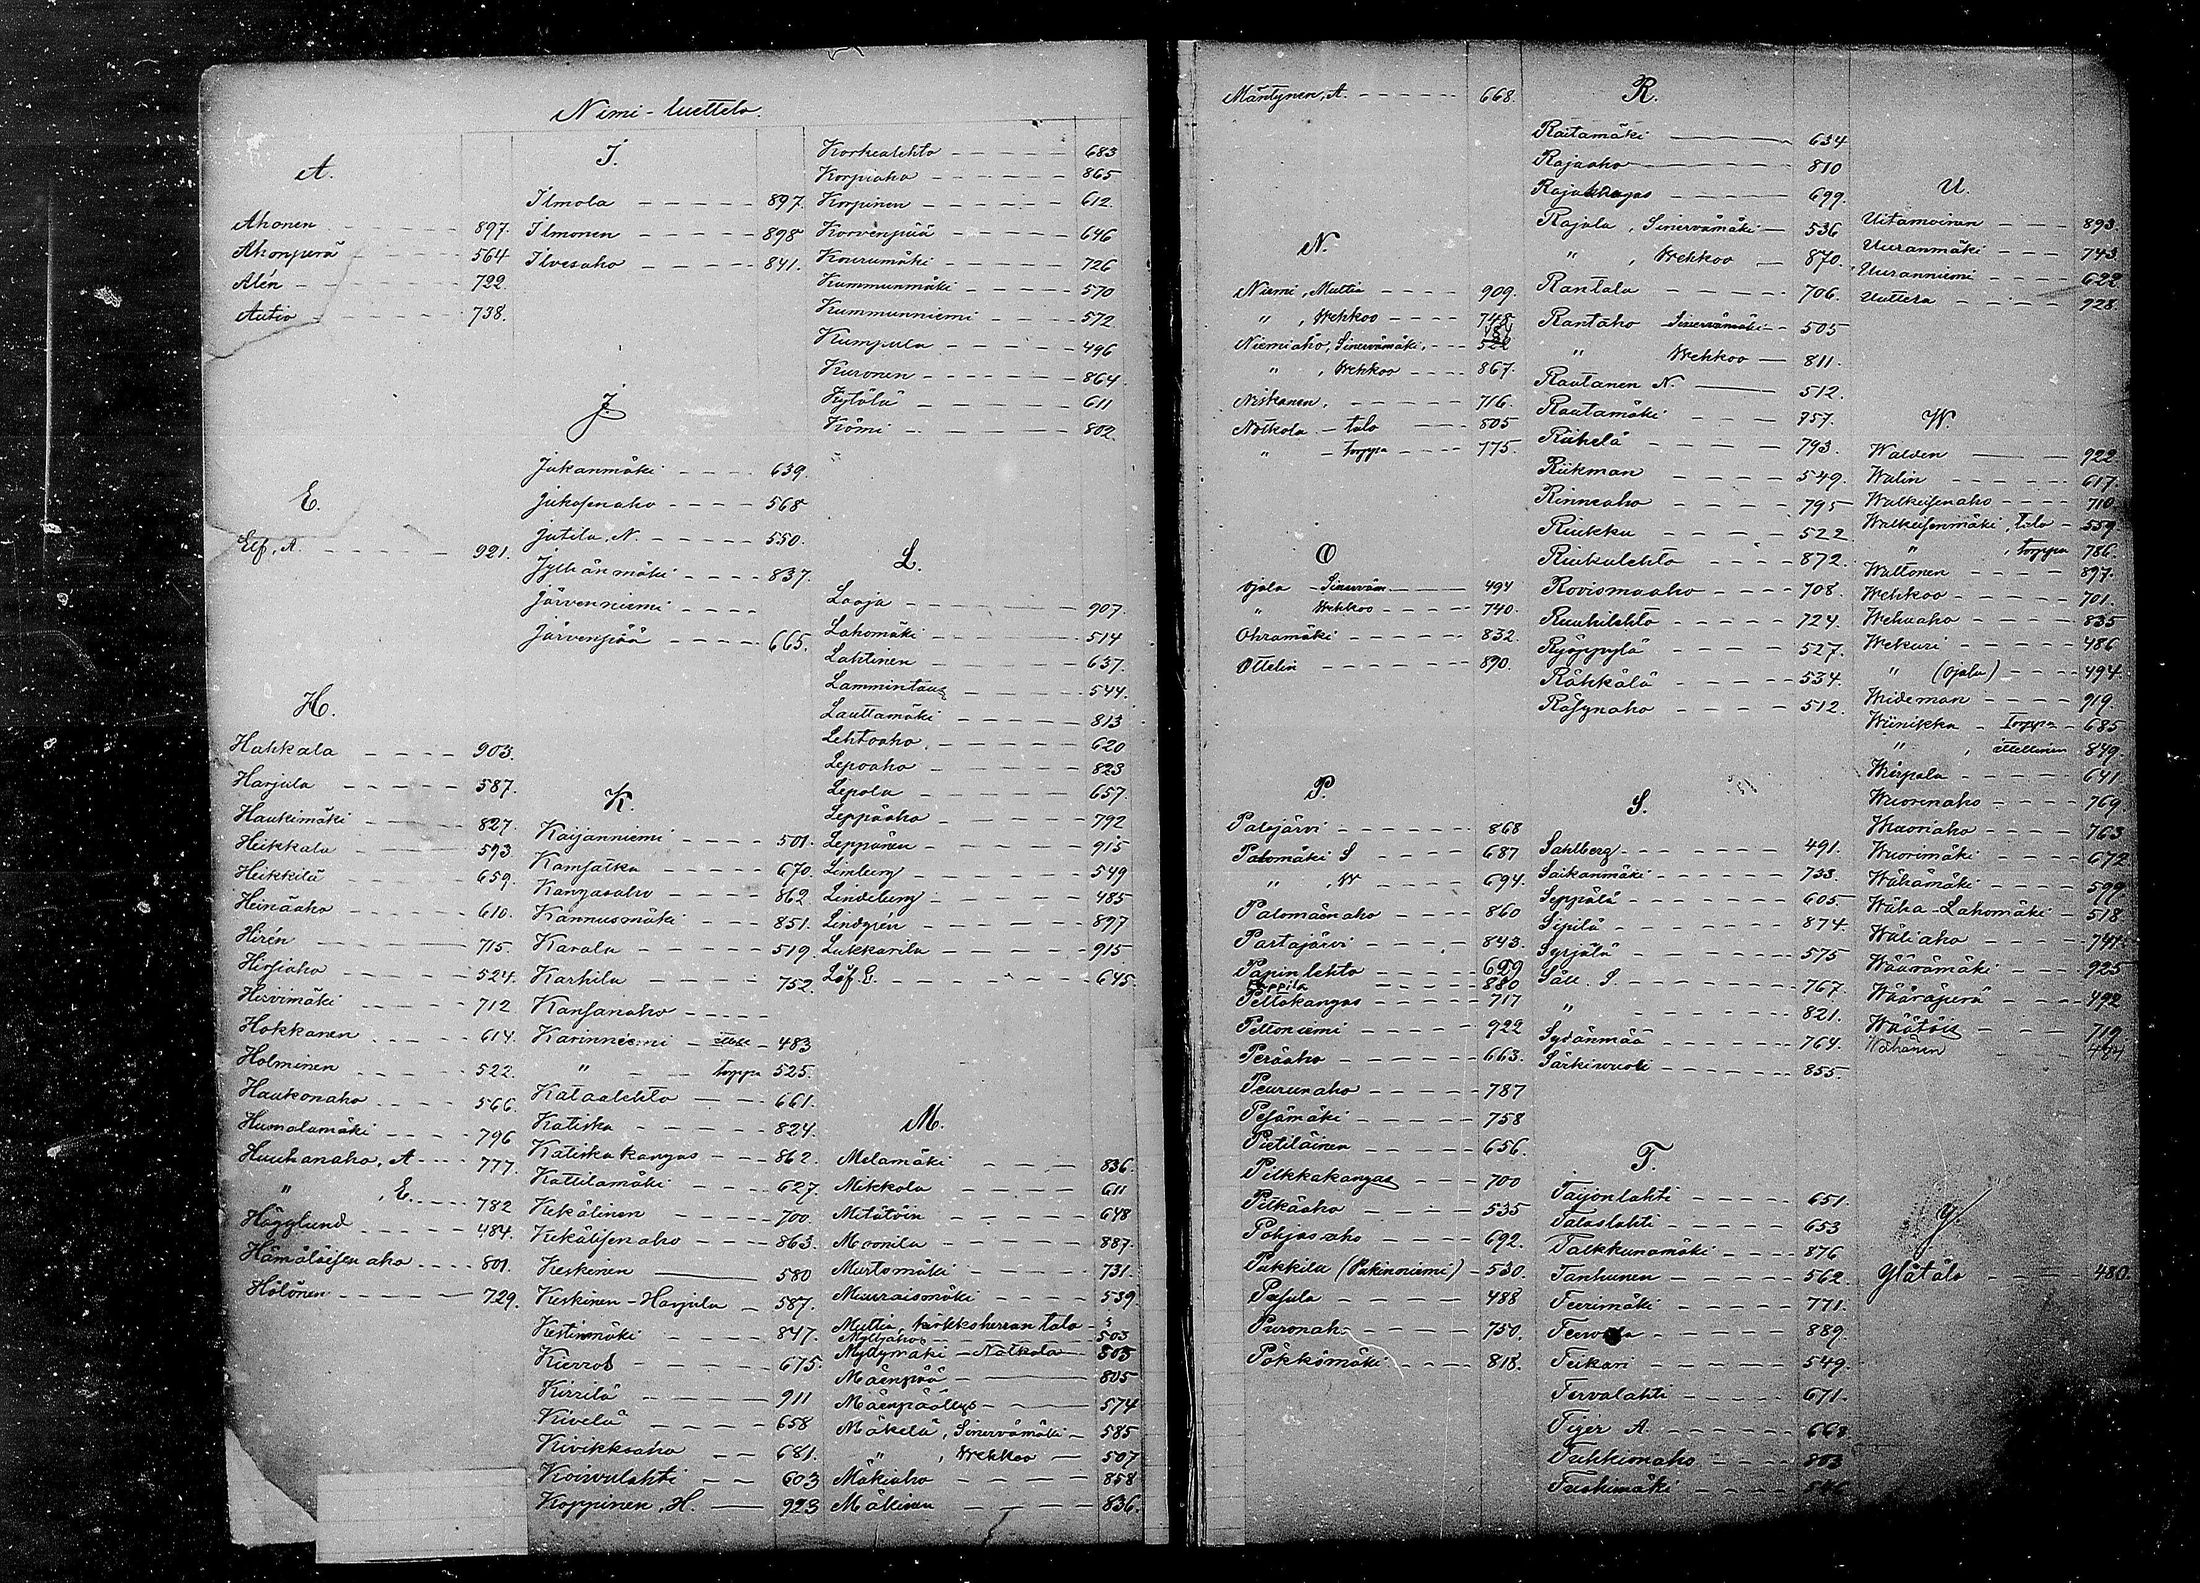 Nimi-luettelo.
A.
Ahonen 897.
Ahonperä 564
Alén 722.
Autio 738.
E.
Elf, A. 921.
H.
Hakkala 903.
Harjula 587.
Haukimäki 827.
Heikkala 593
Heikkilä 659.
Heinäaho 610.
Hirén 715.
Hirsiaho 524.
Hirvimäki 712
Hokkanen 614.
Holminen 522.
Haukonaho 566.
Humalamäki 796
Huuhanaho, A 777.
" , E. 782
Högglund 484.
Hämäläisenaho 801.
Hölönen 729.
I.
Ilmola 897.
Ilmonen 898
Ilvesaho 841.
J.
Jukanmäki 639.
Jukosenaho 568
Jutila, N. 550.
Jythänmäki 837.
Järvenniemi
Järvenpää 665.
K.
Kaijanniemi 501.
Kamsatka 670.
Kangasaho 862
Kannusmäki 851.
Karala 519.
Karhila 752.
Kansanaho
Karinniemi 483
" torppa 525.
Kataalehto 661.
Katiska 824.
Katiskakangas 862.
Kattilamäki 627.
Kekälinen 700.
Kekälisenaho 863.
Keskinen 580
Keskinen-Harjula 587.
Kestinmäki 847.
Kierros 675.
Kirrilä 911
Kivelä 658
Kivikkoaho 681.
Koivulahti 603
Koppinen, H. 923
Korkealehto 683
Korpiaho 865
Korpinen 612.
Korvenpää 646
Kourumäki 726
Kummunmäki 570
Kummunniemi 572
Kumpula 496
Kuronen 864.
Kytölä 611
Kömi 802.
L.
Laaja 907.
Lahomäki 514
Lahtinen 637.
Lammintaus 544.
Lauttamäki 813
Lehtoaho 620
Lepoaho 823
Lepola 657.
Leppäaho 792
Leppänen 915
Limberg 549
Lindeberg 485
Lindgrén 897
Lukkarila 915
Löf E. 645.
M.
Melamäki 836.
Mikkola 611
Metätöin 648
Moonila 887.
Murtomäki 731.
Muuraismäki 539
Multia kirkkoherran talo
Myllyaho 503
Myllymäki - Nätkola 805
Mäenpää 805
Mäenpäällys 574
Mäkelä, Sinervämäki 585
" , Wehkoo 507
Mäkiaho 858
Mällinen 836.
Mäntynen, A. 668.
N.
Niemi, Multia 909.
" , Wehkoo 748
Niemiaho, Sinervämäki, 522
" , Wehkoo 867.
Niskanen, 716.
Nätkola - talo 805
" - torppa 775.
O
Ojala - Sinerväm. 494
" Wehkoo 740.
Ohramäki 832.
Ottelin 890.
P.
Palojärvi 868
Palomäki S 687
" , W 694.
Palomäenaho 860
Partajärvi 843.
Papinlehto 629
Pappila 880
Peltokangas 717
Peltoniemi 922
Peräaho 663.
Peurunaho 787
Pesämäki 758
Pietiläinen 656.
Pilkkakangas 700
Pitkäaho 535
Pohjoisaho 692.
Pukkila (Pukinniemi) 530.
Pusula 488
Puronaho 750.
Pökkömäki 818.
R.
Raitamäki 634
Rajaaho 810
Rajakangas 699.
Rajala, Sinervämäki 536
" , Wehkoo 870.
Rantala 706.
Rantaho Sinervämäki 505
" Wehkoo 811.
Rautanen N. 512.
Rautamäki 757.
Riihelä 793.
Riikman 549.
Rinneaho 795
Riukku 522
Riukulehto 872.
Roviomaaho 708.
Ruuhilehto 724.
Ryöppylä 527.
Rähkälä 534.
Räsynaho 512.
S.
Sahlberg 491.
Saikanmäki 733.
Seppälä 605.
Sipilä 874.
Syrjälä 575
Säll. S. 767.
" 821.
Sydänmaa 764.
Särkivuori 855.
T.
Taijonlahti 651.
Talaslahti 653
Talkkunamäki 876
Tanhunen 562.
Teerimäki 771.
Tervola 889.
Teikari 549.
Tervalahti 671.
Tiger A. 668
Tukkimaho 803
Tuskimäki
U.
Uitamoinen 893.
Uuranmäki 743.
Uuranniemi 622
Uuttera 928.
W.
Walden 922.
Walin 617.
Walkeisenaho 710.
Walkeisenmäki, talo 559
" , torppa 786.
Waltonen 897.
Wehkoo 701.
Wehuaho 835
Wekuri 486
" (Ojala) 494.
Wideman 919.
Wiinikka - Torppa 685
" , 849.
Wirpala 641
Wuorenaho 769.
Wuoriaho 763
Wuorimäki 672
Wähämäki 599
Wäha-Lahomäki 518
Wäliaho 747.
Wäärämäki 925
Wääräperä 492
Wäätöis 719
Wähänen
Y.
Ylätalo 480.